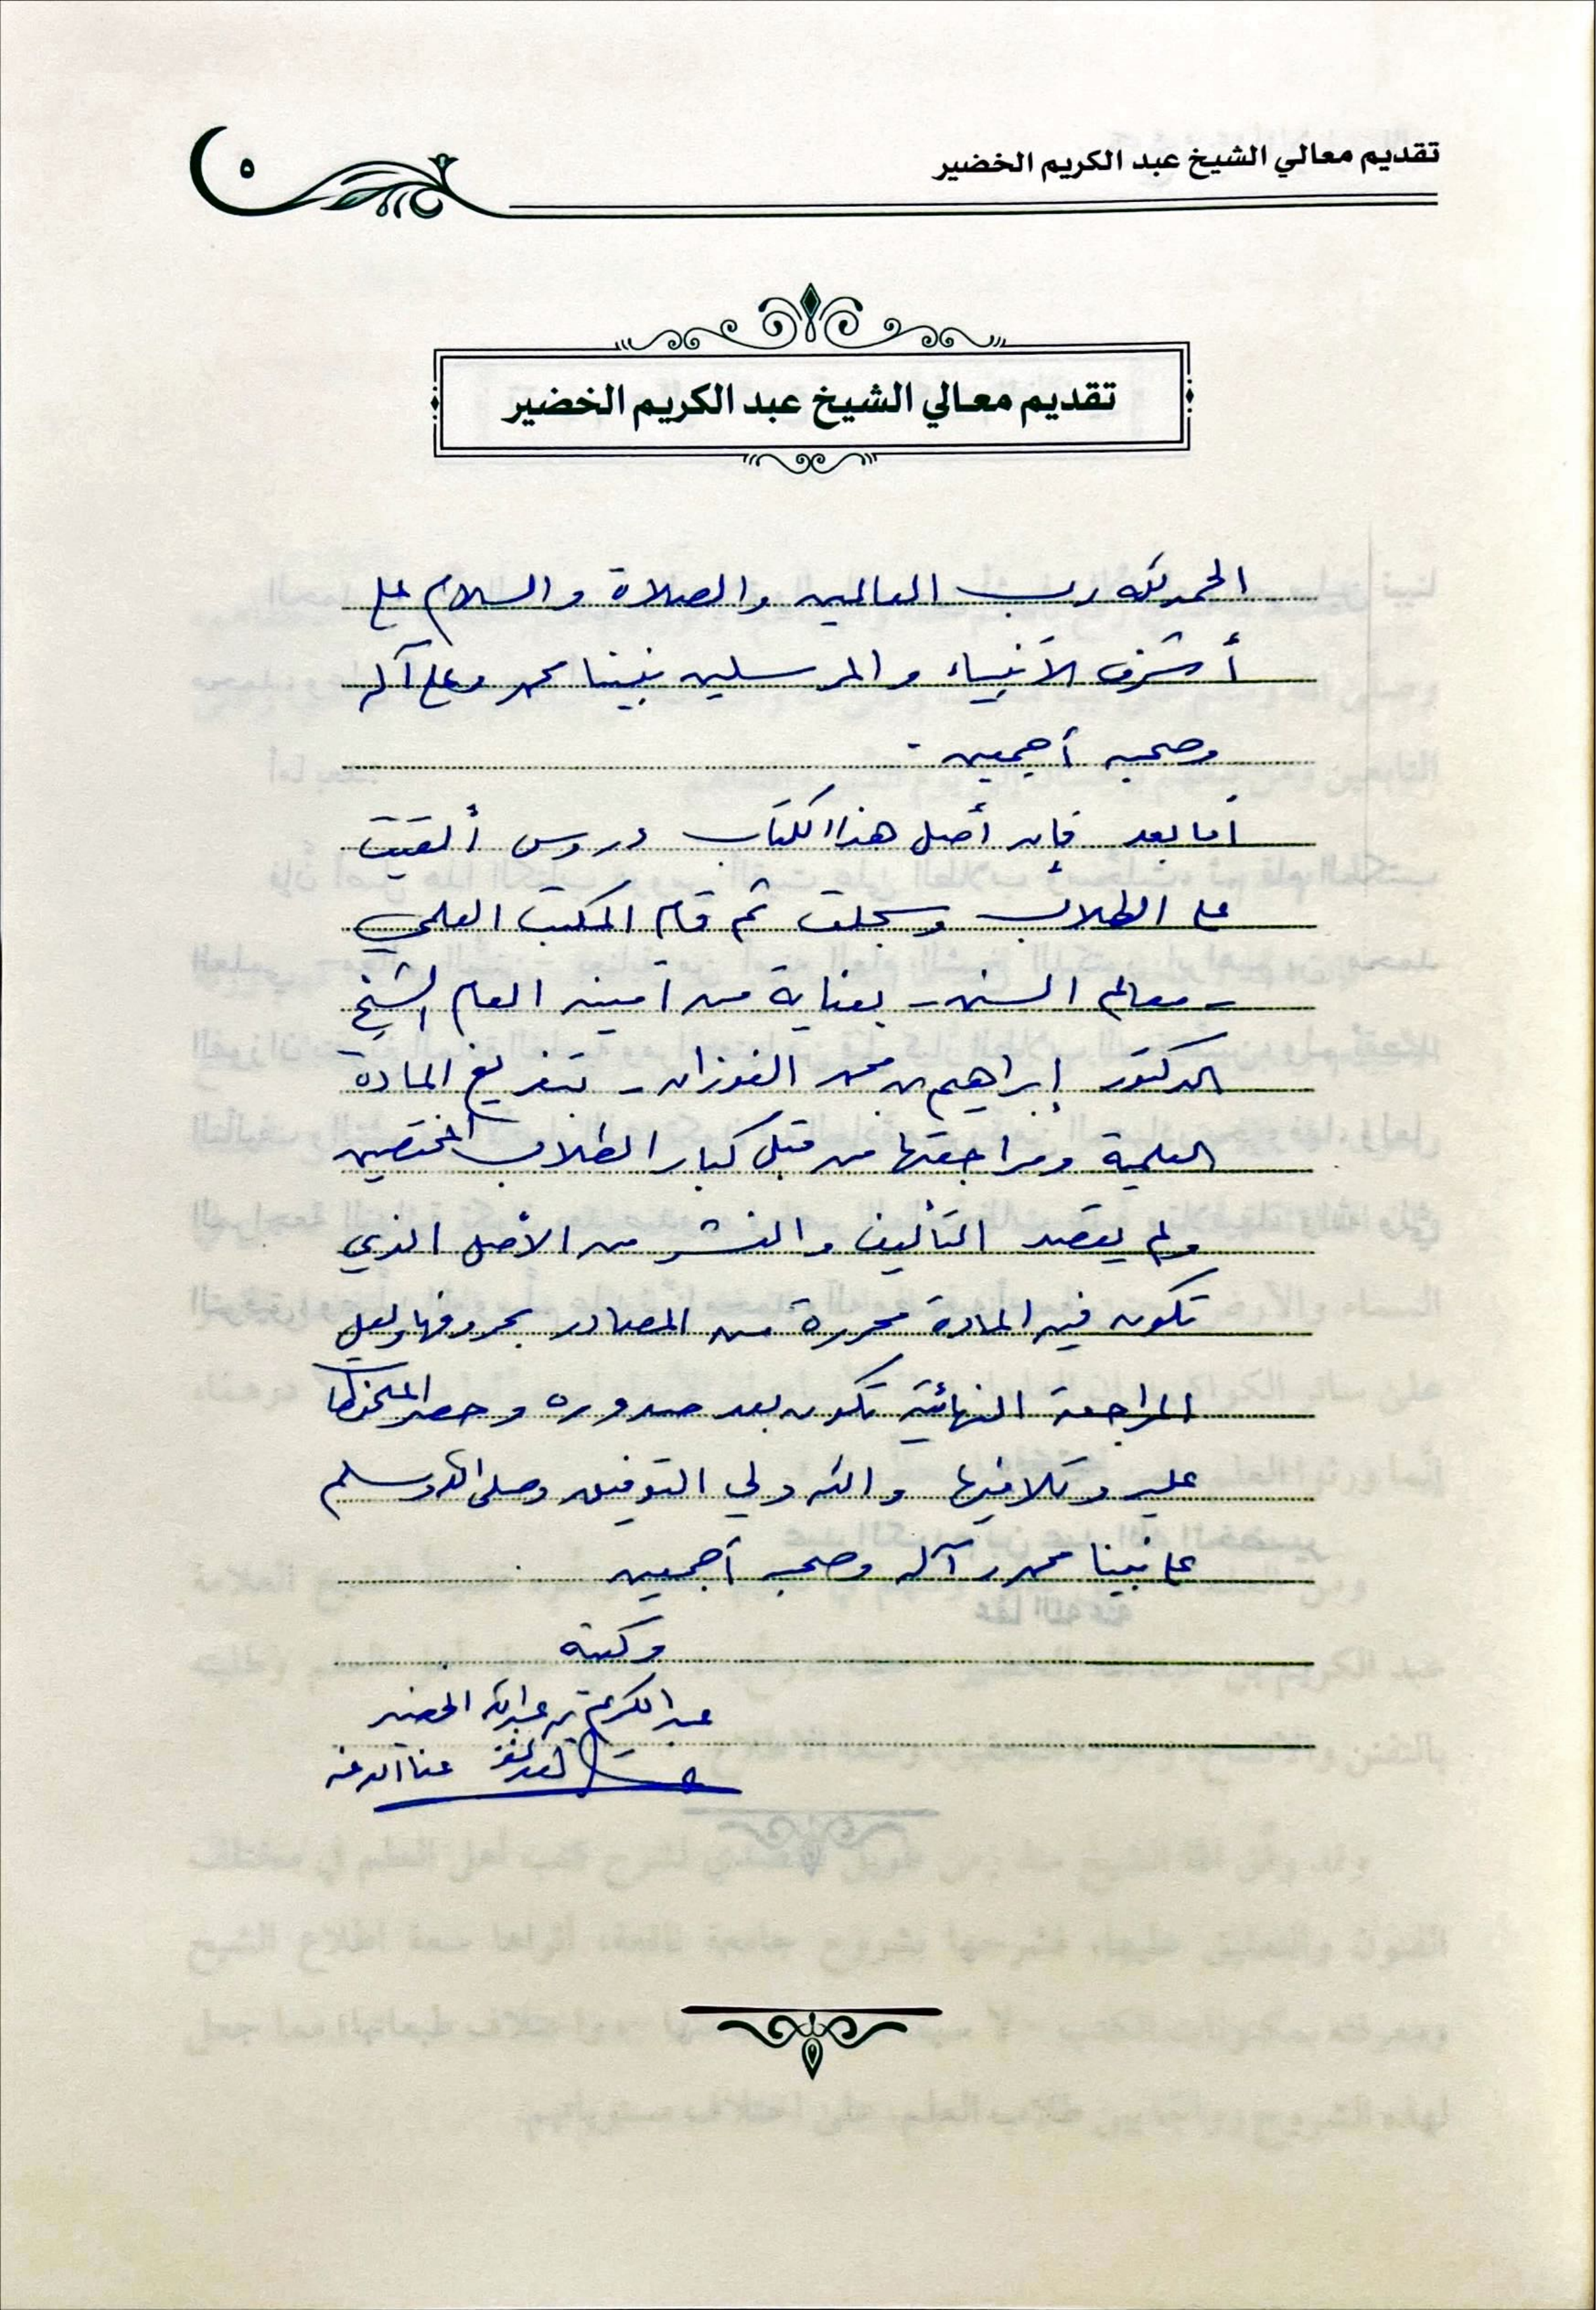 تقديم معالي الشيخ عبد الكريم الخضير
٥
تقديم معالي الشيخ عبد الكريم الخضير
الحمد لله رب العالمين والصلاة والسلام على
أشرف الأنبياء والمرسلين نبينا محمد وعلى آله
وصحبه أجمعين .
أما بعد فإن أصل هذا الكتاب دروس ألقيت
على الطلاب وسجلت ثم قام المكتب العلمي
- معالم السنن - بعناية من أمينه العام الشيخ
الدكتور إبراهيم بن محمد الفوزان - بتفريغ المادة
العلمية ومراجعتها من قبل كبار الطلاب المختصين
ولم يقصد التأليف والنشر من الأصل الذي
تكون فيه المادة محررة من المصادر بحروفها ولعل
المراجعة النهائية تكون بعد صدوره وحصر الملحوظات
عليه وتلافيها والله ولي التوفيق وصلى الله وسلم
على نبينا محمد وآله وصحبه أجمعين
وكتبه
عبد الكريم بن عبد الله الخضير
عفا الله عنه